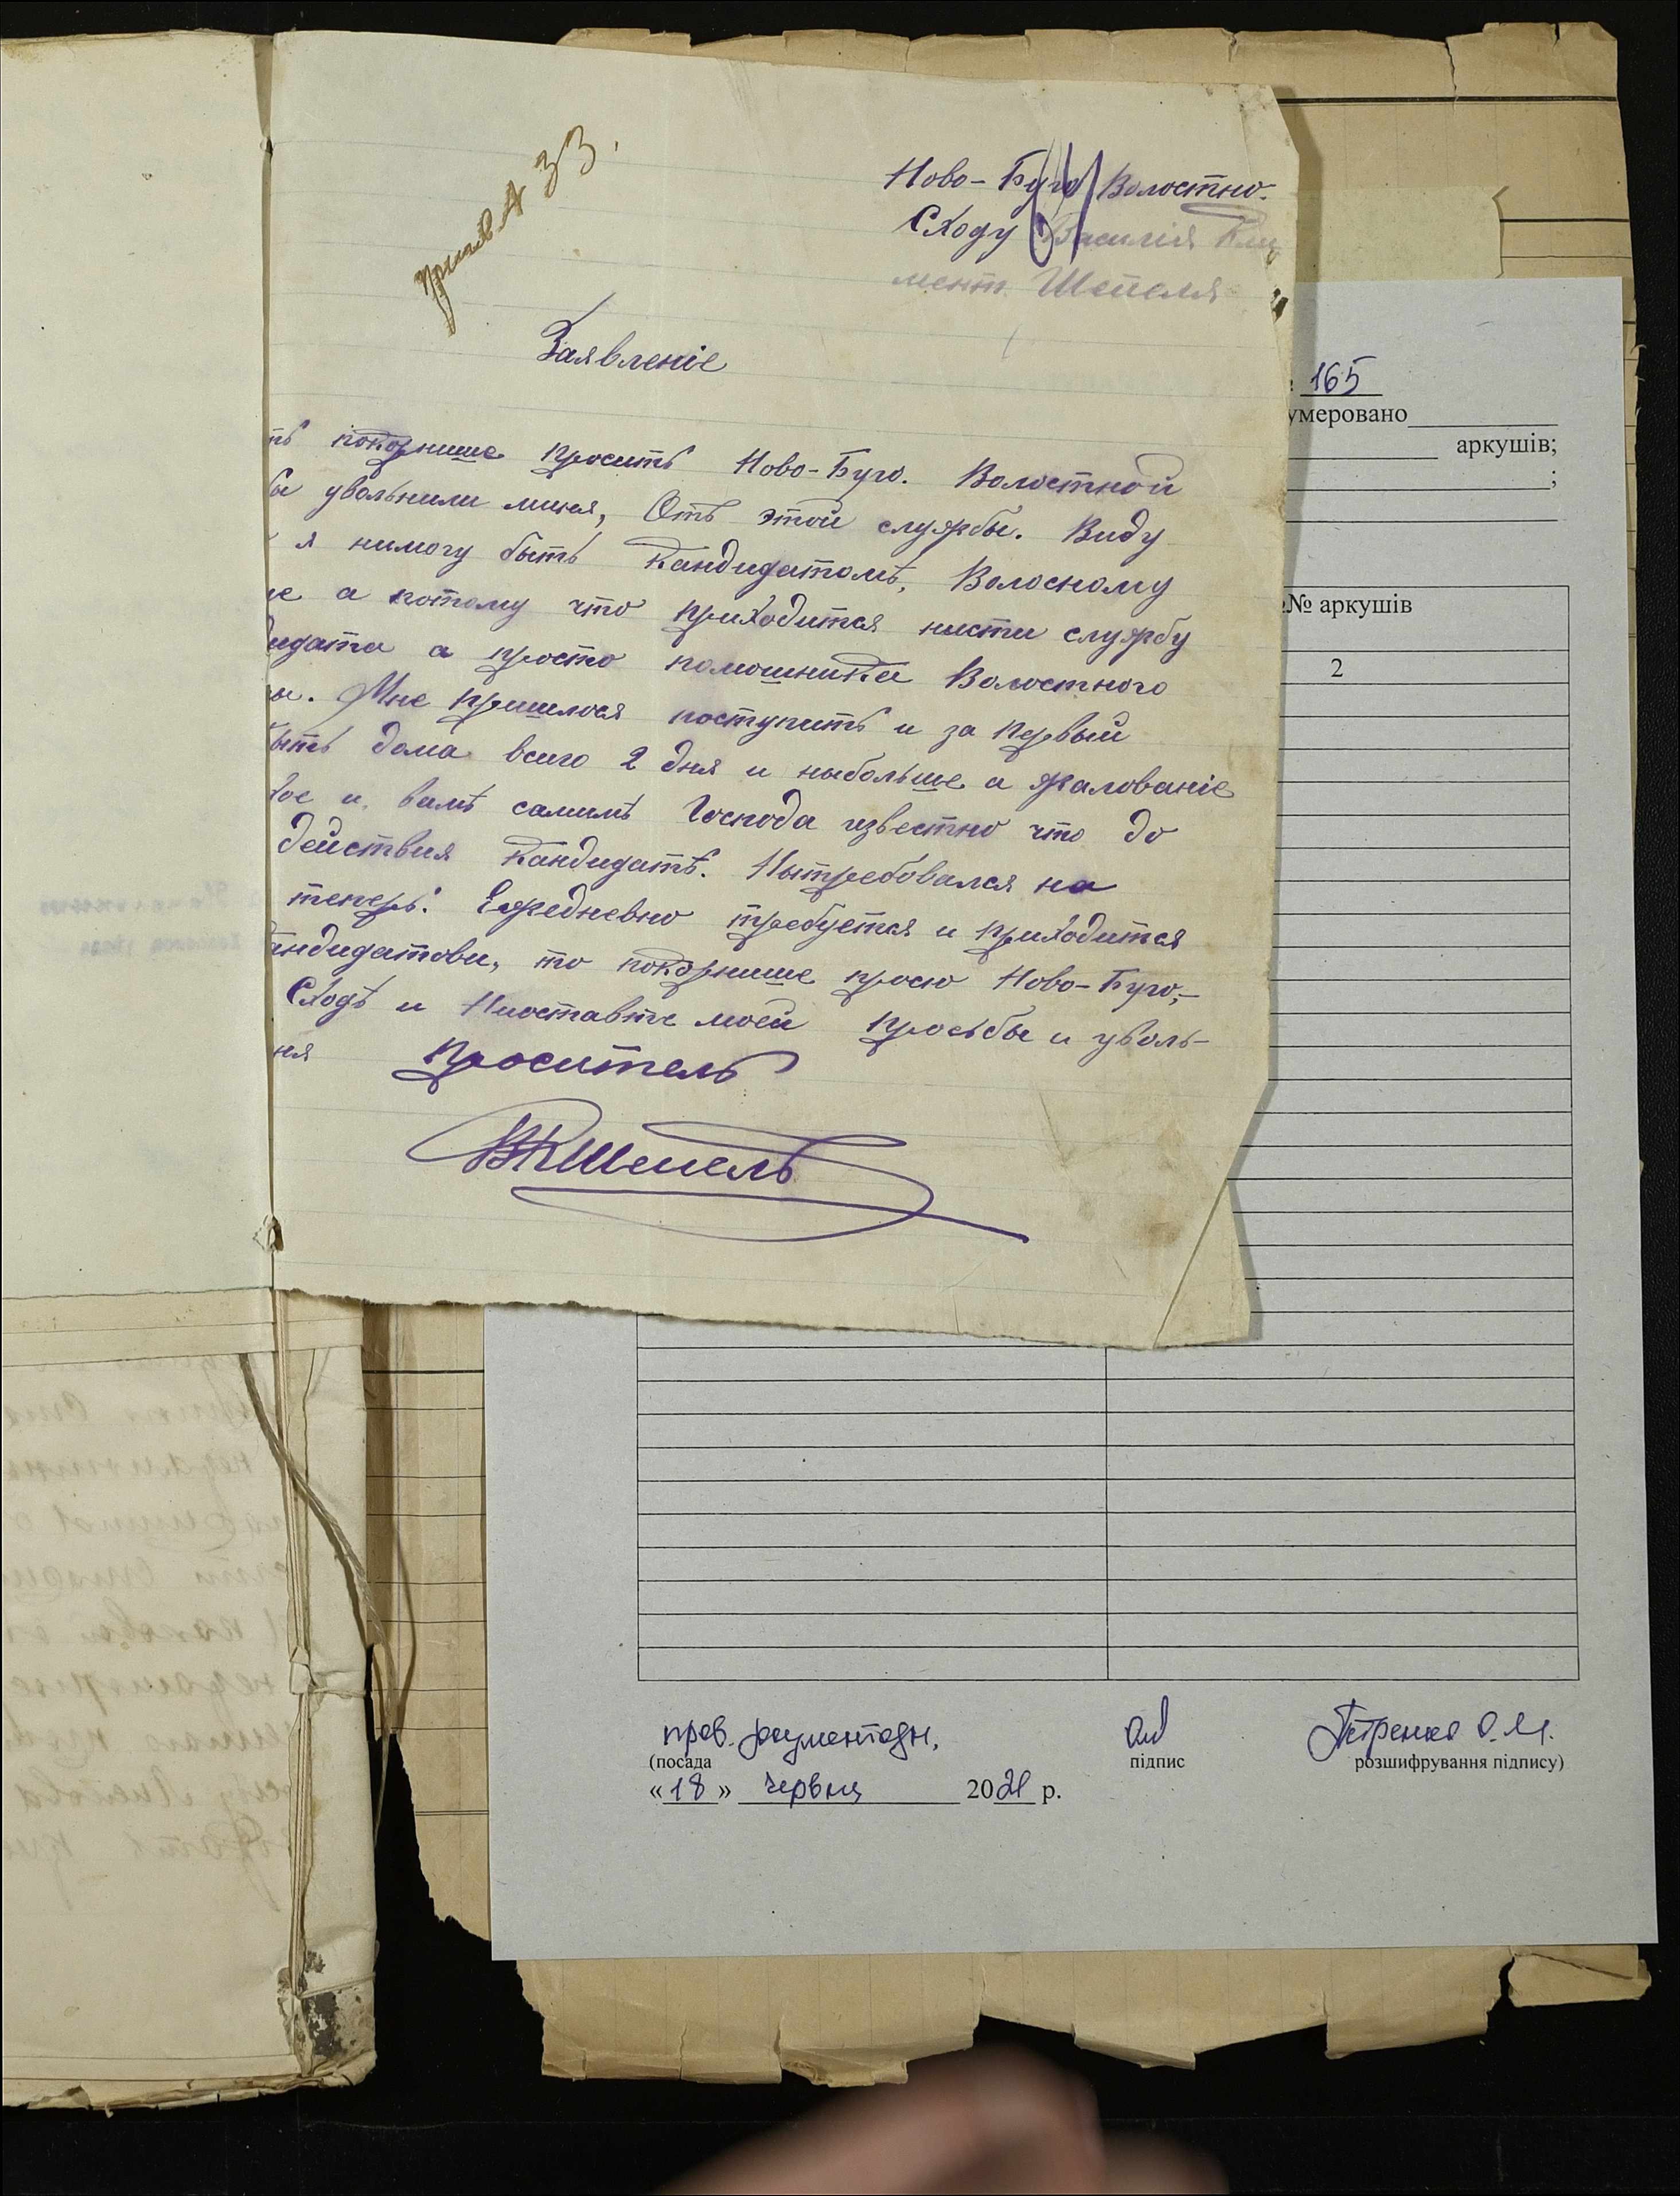 33.
Ново-Буго Волостно.
Сходу Василія Кли
мент. Шепеля
Заявленіе
ть покорнише просить Ново-Буго. Волостной
бы увольнили миня, Отъ этой службы. Виду
я нимогу быть Кандидатомъ, Волосному
не а потому что приходится нисти службу
идата а просто помошника Волостного
ы. Мне пришлося поступить и за первый
ыть дома всиго 2 дня и ныбольше а жалованіе
кое и вамъ самимъ Господа известно что до
действия Кандидатъ. Нытребовался на
теперь: Ежедневно требуется и приходится
андидатови, то покорнише просю Ново-Буго,-
Сходъ и Ниоставте моей просьбы и уволь-
ня Проситель
ВКШепель
165
умеровано
аркушів;
;
№ аркушів
2
(посада
підпис
Петренко О.М.
розшифрування підпису)
« 18 » червня 2021 р.